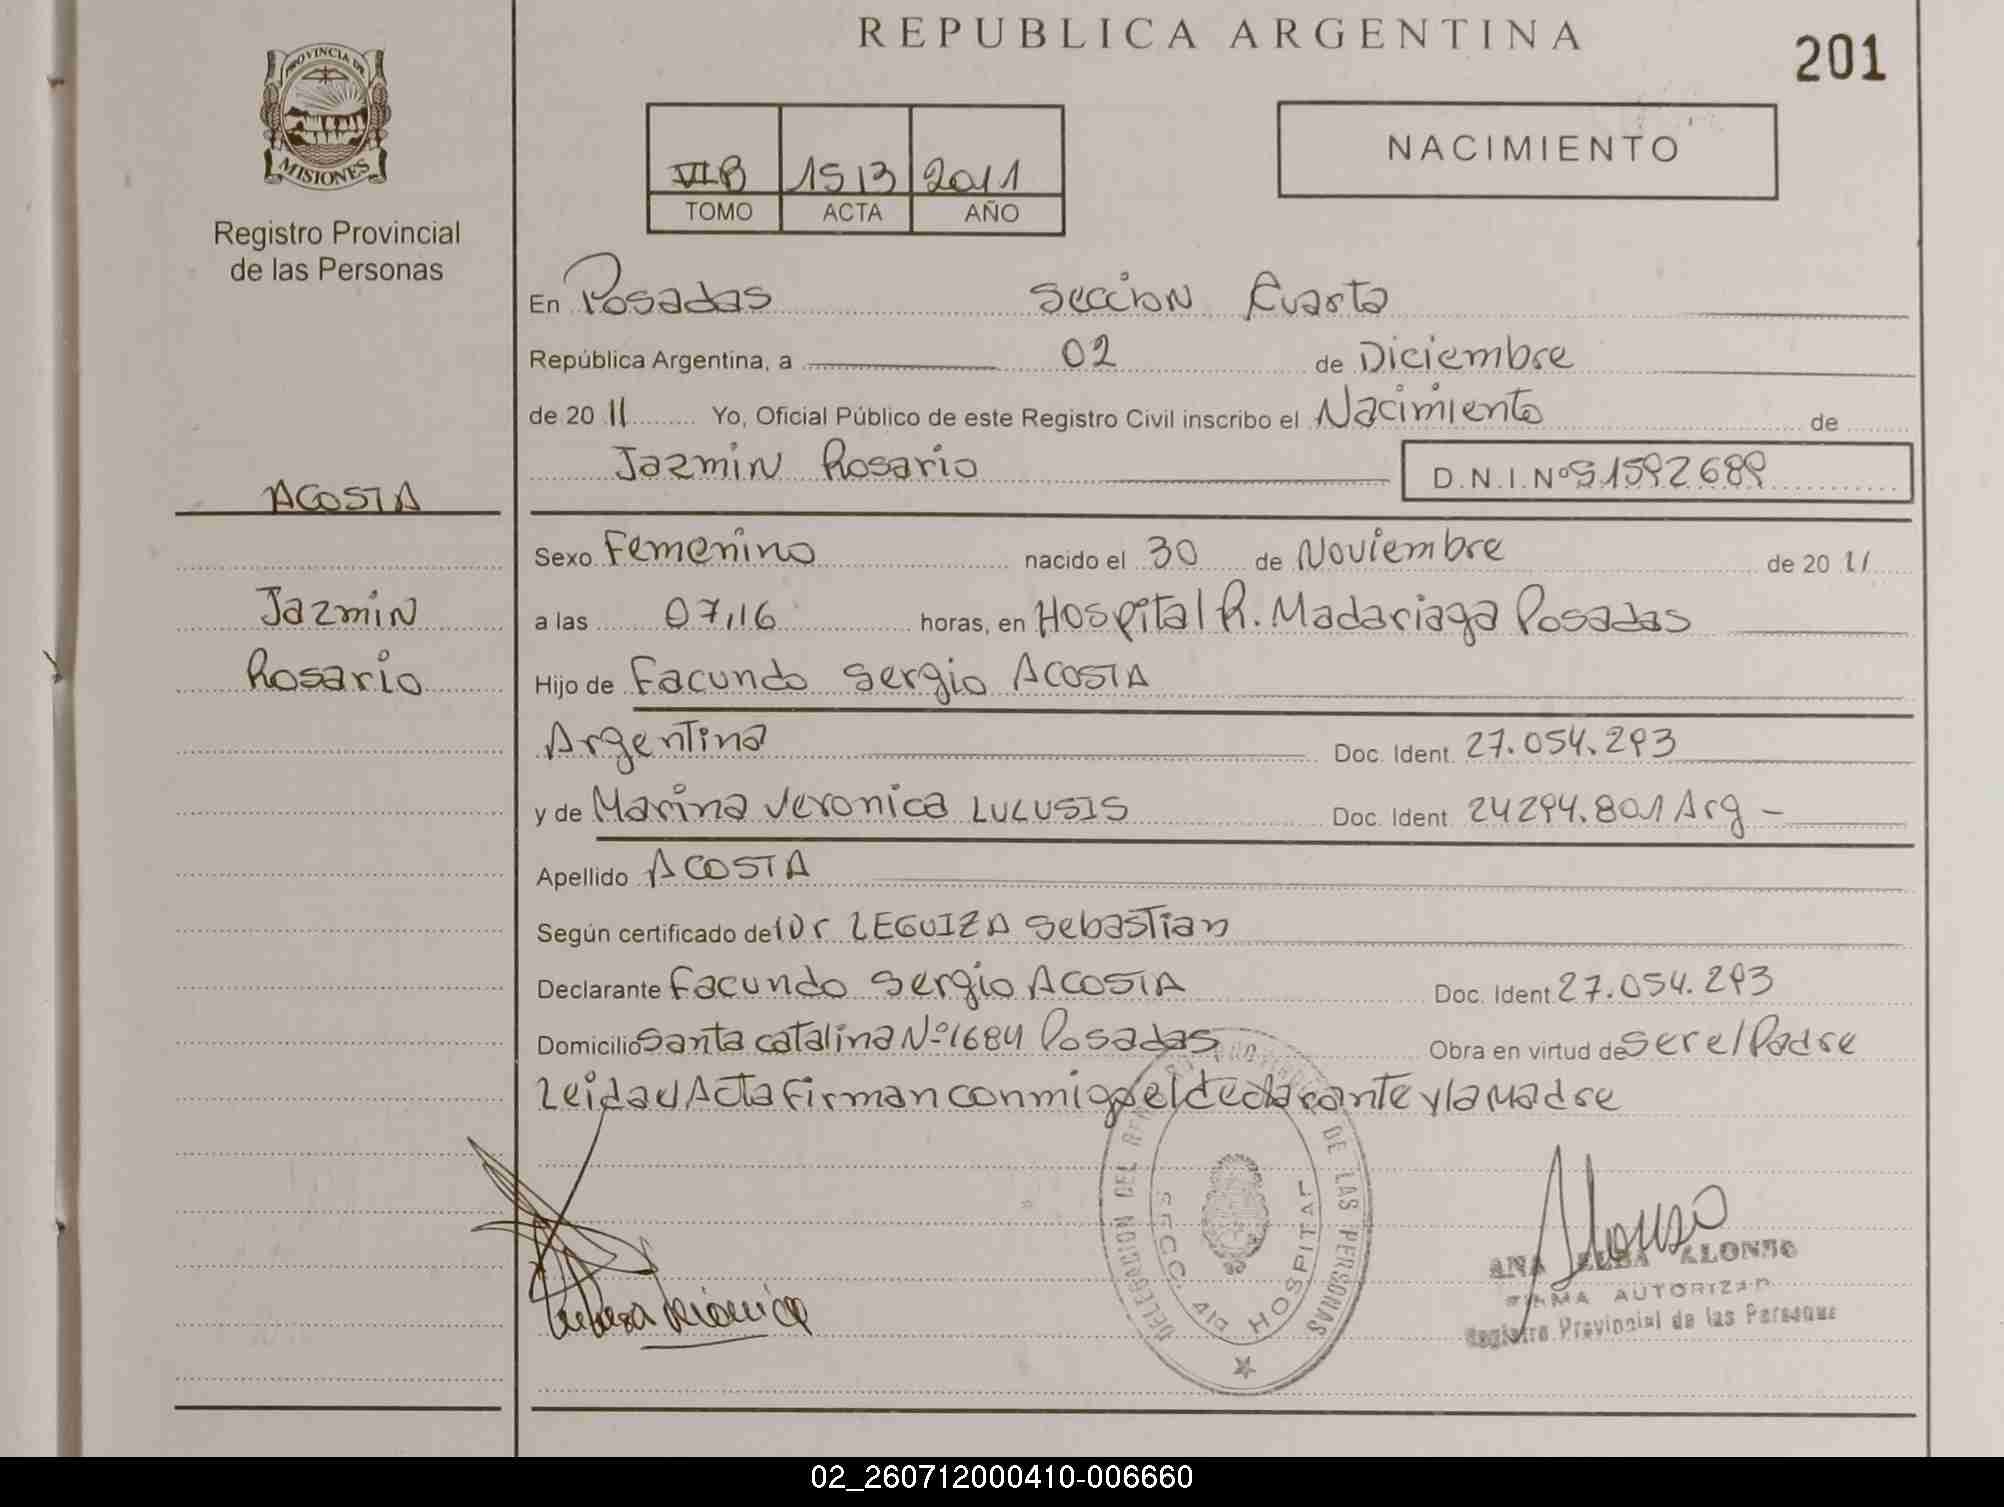 REPUBLICA ARGENTINA
201
PROVINCIA DE
MISIONES
Registro Provincial
de las Personas
VI B 1513 2011
TOMO ACTA AÑO
NACIMIENTO
En Posadas Seccion Cuarta
República Argentina, a 02 de Diciembre
de 20 11 Yo, Oficial Público de este Registro Civil inscribo el Nacimiento de
Jazmin Rosario D.N.I.Nº 51592689
ACOSTA
Sexo Femenino nacido el 30 de Noviembre de 20 11
Jazmin
a las 07,16 horas, en Hospital R. Madariaga Posadas
Rosario
Hijo de Facundo Sergio ACOSTA
Argentina Doc. Ident. 27.054.293
y de Marina Veronica LULUSIS Doc. Ident. 24294.801 Arg -
Apellido ACOSTA
Según certificado del Dr LEGUIZA Sebastian
Declarante Facundo Sergio ACOSTA Doc. Ident. 27.054.293
Domicilio Santa Catalina Nº 1684 Posadas Obra en virtud de ser el Padre
Leida el Acta firman conmigo el declarante y la Madre
DELEGACION DEL DE LAS PERSONAS
SECC. 4ta HOSPITAL
Alonso
ANA ELBA ALONSO
FIRMA AUTORIZAD
Registro Provincial de las Personas
02_260712000410-006660